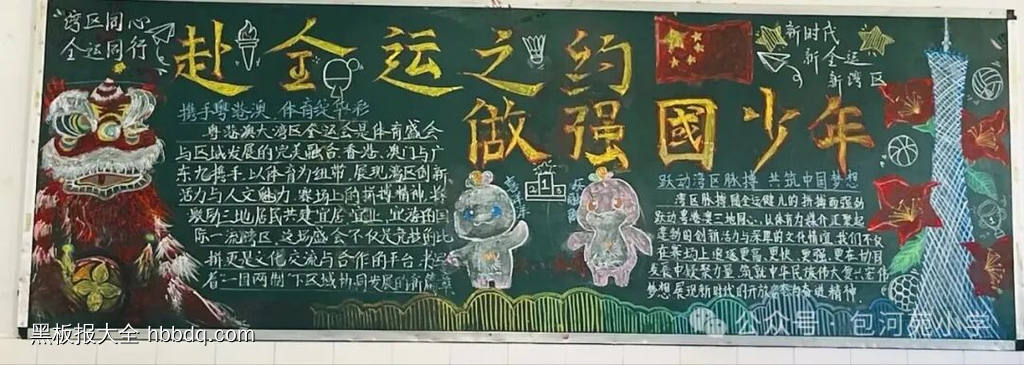 湾区同心
全运同行
赴全运之约
做强國少年
新时代
新全运
新湾区
携手粤港澳,体育绽华彩
粤港澳大湾区全运会是体育盛会
与区域发展的完美融合.香港、澳门与广
东九携手,以体育为纽带,展现湾区创新
活力与人文魅力.赛场上的拼搏精神,将
激励三地居民共建宜居、宜业、宜游的国
际一流湾区.这场盛会不仅是竞技的比
拼更是文化交流与合作的平台,
着一国两制下区域协同发展的新篇章
1
跃动湾区脉搏 共筑中国梦想
湾区脉搏随全运健儿的拼搏而强劲
跃动粤港澳三地同心,以体育为媒介汇聚起
蓬勃的创新活力与深厚的文化情谊.我们不仅
在赛场上追逐更高、更快、更强,更在协同
发展中凝聚力量,筑就中华民族伟大复兴的
梦想,展现新时代的开放与奋进精神
黑板报大全 hbbdq.com
公众号·包河苑小学